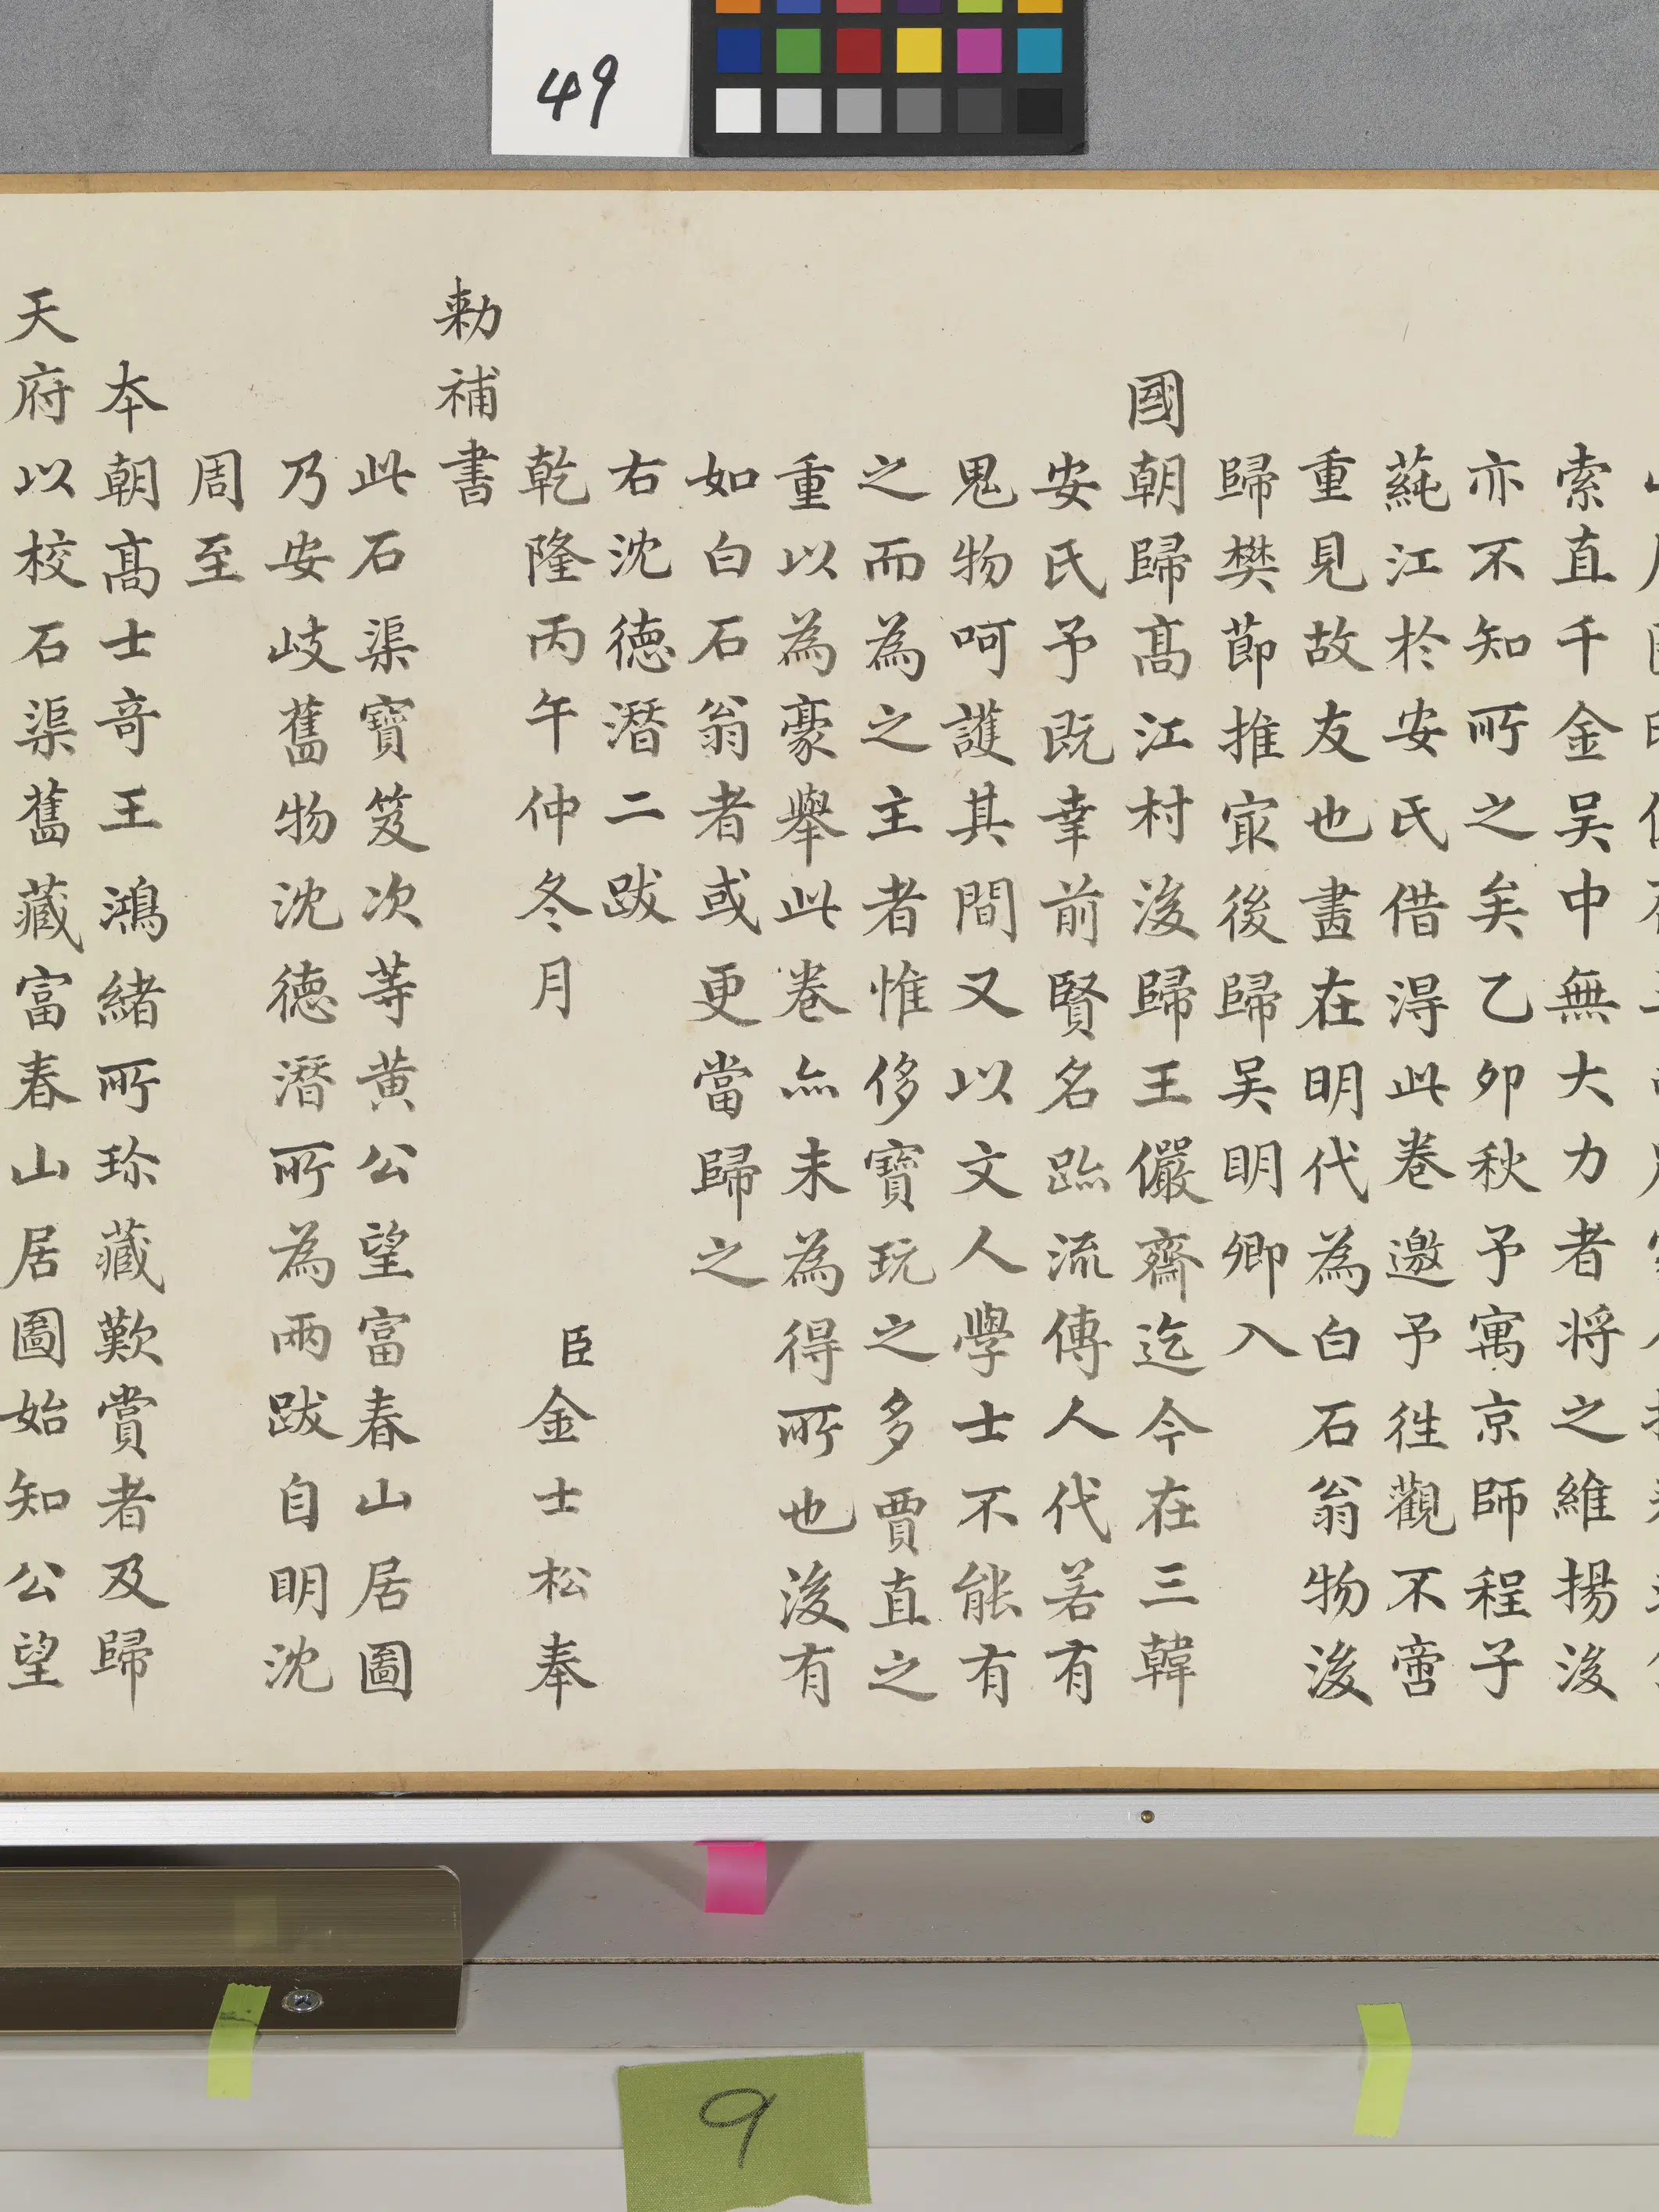 49
索直千金吴中無大力者将之維揚後
亦不知所之矣乙卯秋予寓京師程子
蓴江於安氏借得此卷邀予往觀不啻
重見故友也畫在明代為白石翁物後
歸樊節推㝡後歸吴明卿入
國朝歸髙江村後歸王儼齋迄今在三韓
安氏予既幸前賢名跡流傳人代若有
鬼物呵護其間又以文人學士不能有
之而為之主者惟侈寶玩之多賈直之
重以為豪舉此卷亦未為得所也後有
如白石翁者或更當歸之
右沈德潛二跋
乾隆丙午仲冬月 臣金士松奉
勅補書
此石渠寶笈次等黄公望富春山居圖
乃安岐舊物沈德潛所為兩跋自明沈
周至
本朝髙士奇王鴻緒所珎藏歎賞者及歸
天府以校石渠舊藏富春山居圖始知公望
9